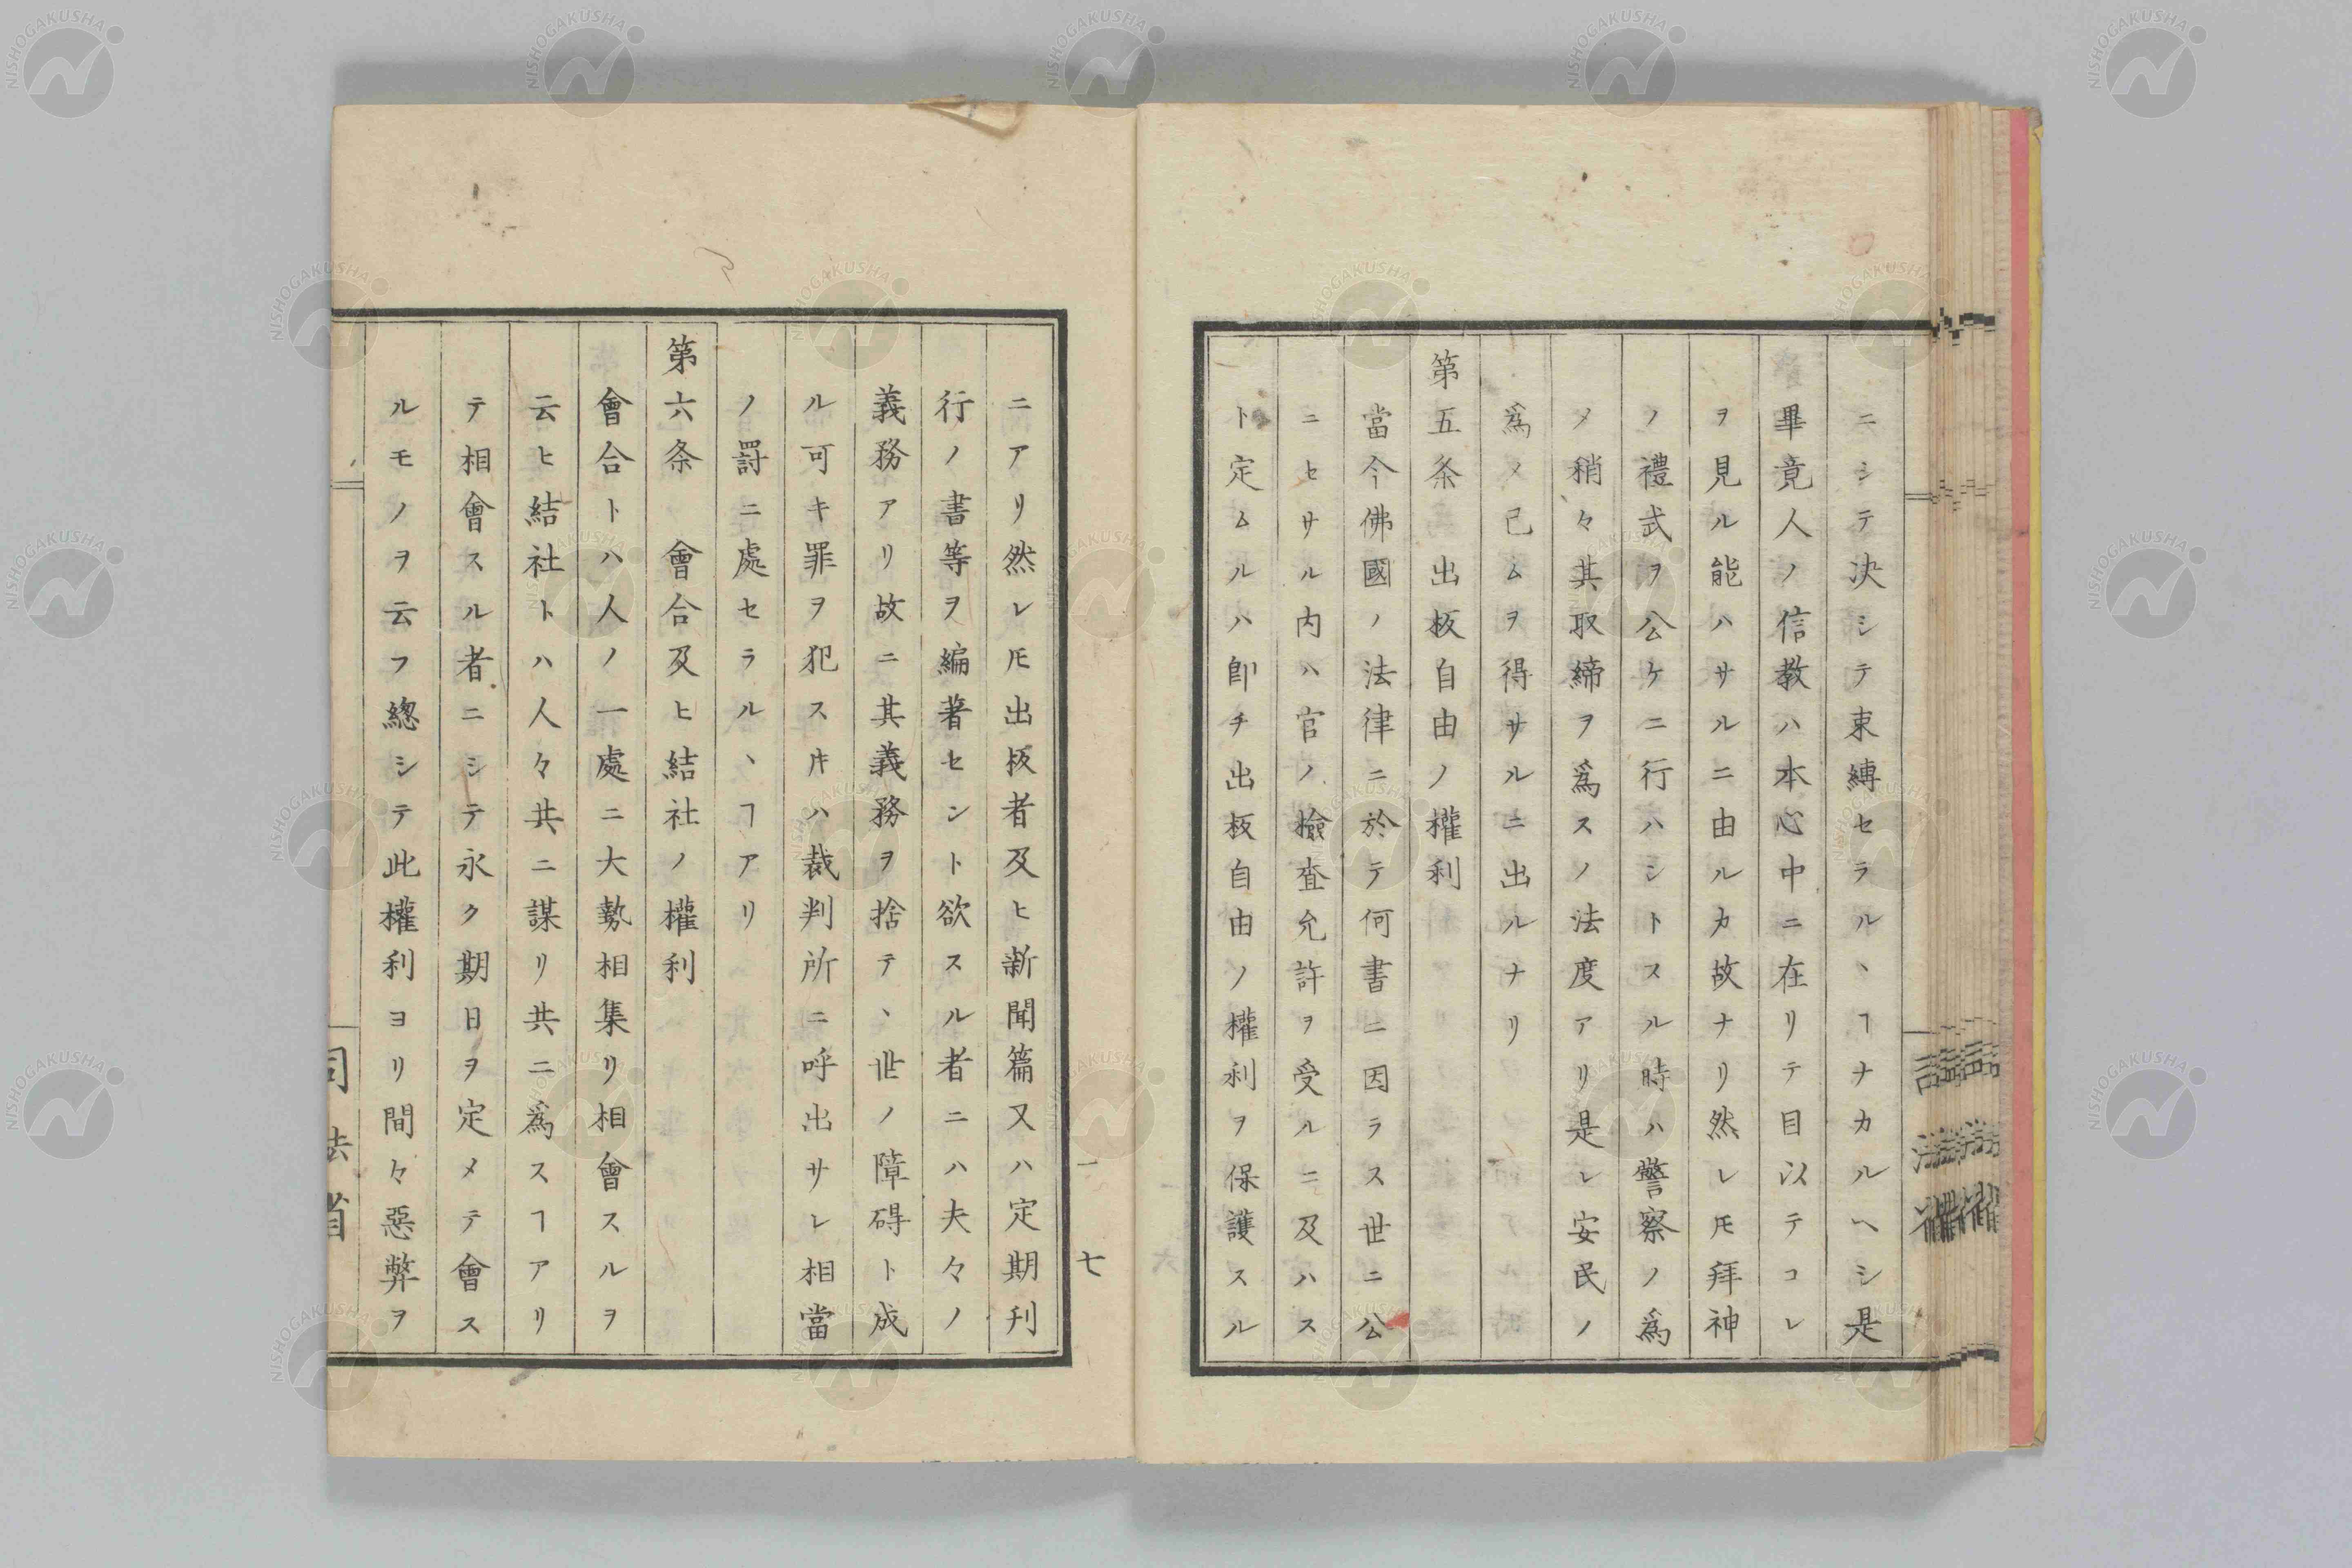 ニシテ決シテ束縛セラルヽヿナカルヘシ是
畢竟人ノ信教ハ本心中ニ在リテ目以テコレ
ヲ見ル能ハサルニ由ルカ故ナリ然レ𪜈拜神
ノ禮式ヲ公ケニ行ハシトスル時ハ警察ノ爲
メ稍々其取締ヲ爲スノ法度アリ是レ安民ノ
爲メ已ムヲ得サルニ出ルナリ
第五条 出板自由ノ權利
當今佛國ノ法律ニ於テ何書ニ因ラス世ニ公
ニセサル内ハ官ノ檢査允許ヲ受ルニ及ハス
ト定ムルハ即チ出板自由ノ權利ヲ保護スル
ニアリ然レ𪜈出板者及ヒ新聞篇又ハ定期刊
行ノ書等ヲ編著セント欲スル者ニハ夫々ノ
義務アリ故ニ其義務ヲ捨テヽ世ノ障碍ト成
ル可キ罪ヲ犯スキハ裁判所ニ呼出サレ相當
ノ罰ニ處セラルヽヿアリ
第六条 會合及ヒ結社ノ權利
會合トハ人ノ一處ニ大勢相集リ相會スルヲ
云ヒ結社トハ人々共ニ謀リ共ニ爲スヿアリ
テ相會スル者ニシテ永ク期日ヲ定メテ會ス
ルモノヲ云フ總シテ此權利ヨリ間々惡弊ヲ
司法省
一 七
NISHOGAKUSHA